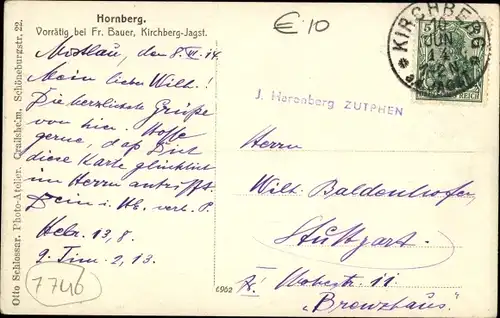 Hornberg.
Vorrätig bei Fr. Bauer, Kirchberg-Jagst.
€10
KIRCHBERG
10
JUN
14
5
Mostlau, den 8. VI. 14.
Mein lieber Wilh.!
Die herzlichste Grüße
von hier. Hoffe
gerne, daß Dich
diese Karte glücklich
im Herrn antrifft.
Dein i. He. verb. P.
Hebr. 13,8.
2. Tim. 2,13.
7746
Otto Schlosser, Photo-Atelier, Crailsheim, Schöneburgstr. 22.
6962
J. Herenberg ZUTPHEN
Herrn
Wilh. Baldenhofer,
Stuttgart.
11
"Brenzhaus."